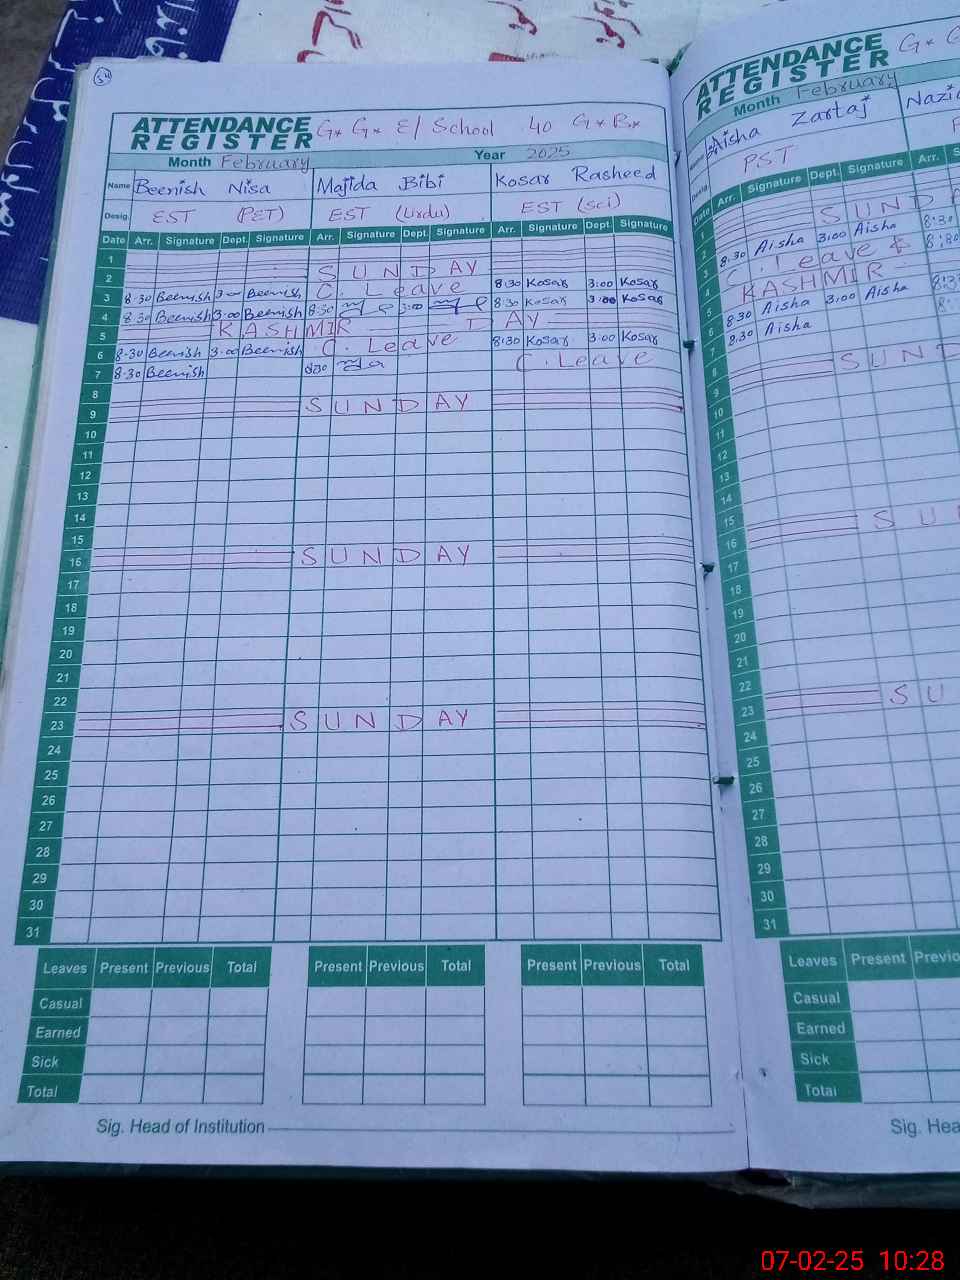 ATTENDANCE
REGISTER
G* G* E/ School 40 G*B*
Month February Year 2025
Name Beenish Nisa Majida Bibi Kosar Rasheed
Desig. EST (PET) EST (Urdu) EST (Sci)
Date Arr. Signature Dept. Signature Arr. Signature Dept. Signature Arr. Signature Dept. Signature
1
2 SUNDAY
3 8:30 Beenish 3:00 Beenish C. Leave 8:30 Kosar 3:00 Kosar
4 8:30 Beenish 3:00 Beenish 8:30 3:00 8:30 Kosar 3:00 Kosar
5 KASHMIR DAY
6 8:30 Beenish 3:00 Beenish C. Leave 8:30 Kosar 3:00 Kosar
7 8:30 Beenish 8:30 C. Leave
8
9 SUNDAY
10
11
12
13
14
15
16 SUNDAY
17
18
19
20
21
22
23 SUNDAY
24
25
26
27
28
29
30
31
Leaves Present Previous Total Present Previous Total Present Previous Total
Casual
Earned
Sick
Total
Sig. Head of Institution
ATTENDANCE
REGISTER
G*
Month February
Aisha Zartaj
Desig. PST
Date Arr. Signature Dept. Signature Arr.
1
2 SUND
3 8:30 Aisha 3:00 Aisha 8:30
4 C. Leave 8:30
5 KASHMIR
6 8:30 Aisha 3:00 Aisha 8:30
7 8:30 Aisha
8
9 SUND
10
11
12
13
14
15
16 SU
17
18
19
20
21
22
23 SU
24
25
26
27
28
29
30
31
Leaves Present
Casual
Earned
Sick
Total
Sig.
07-02-25 10:28